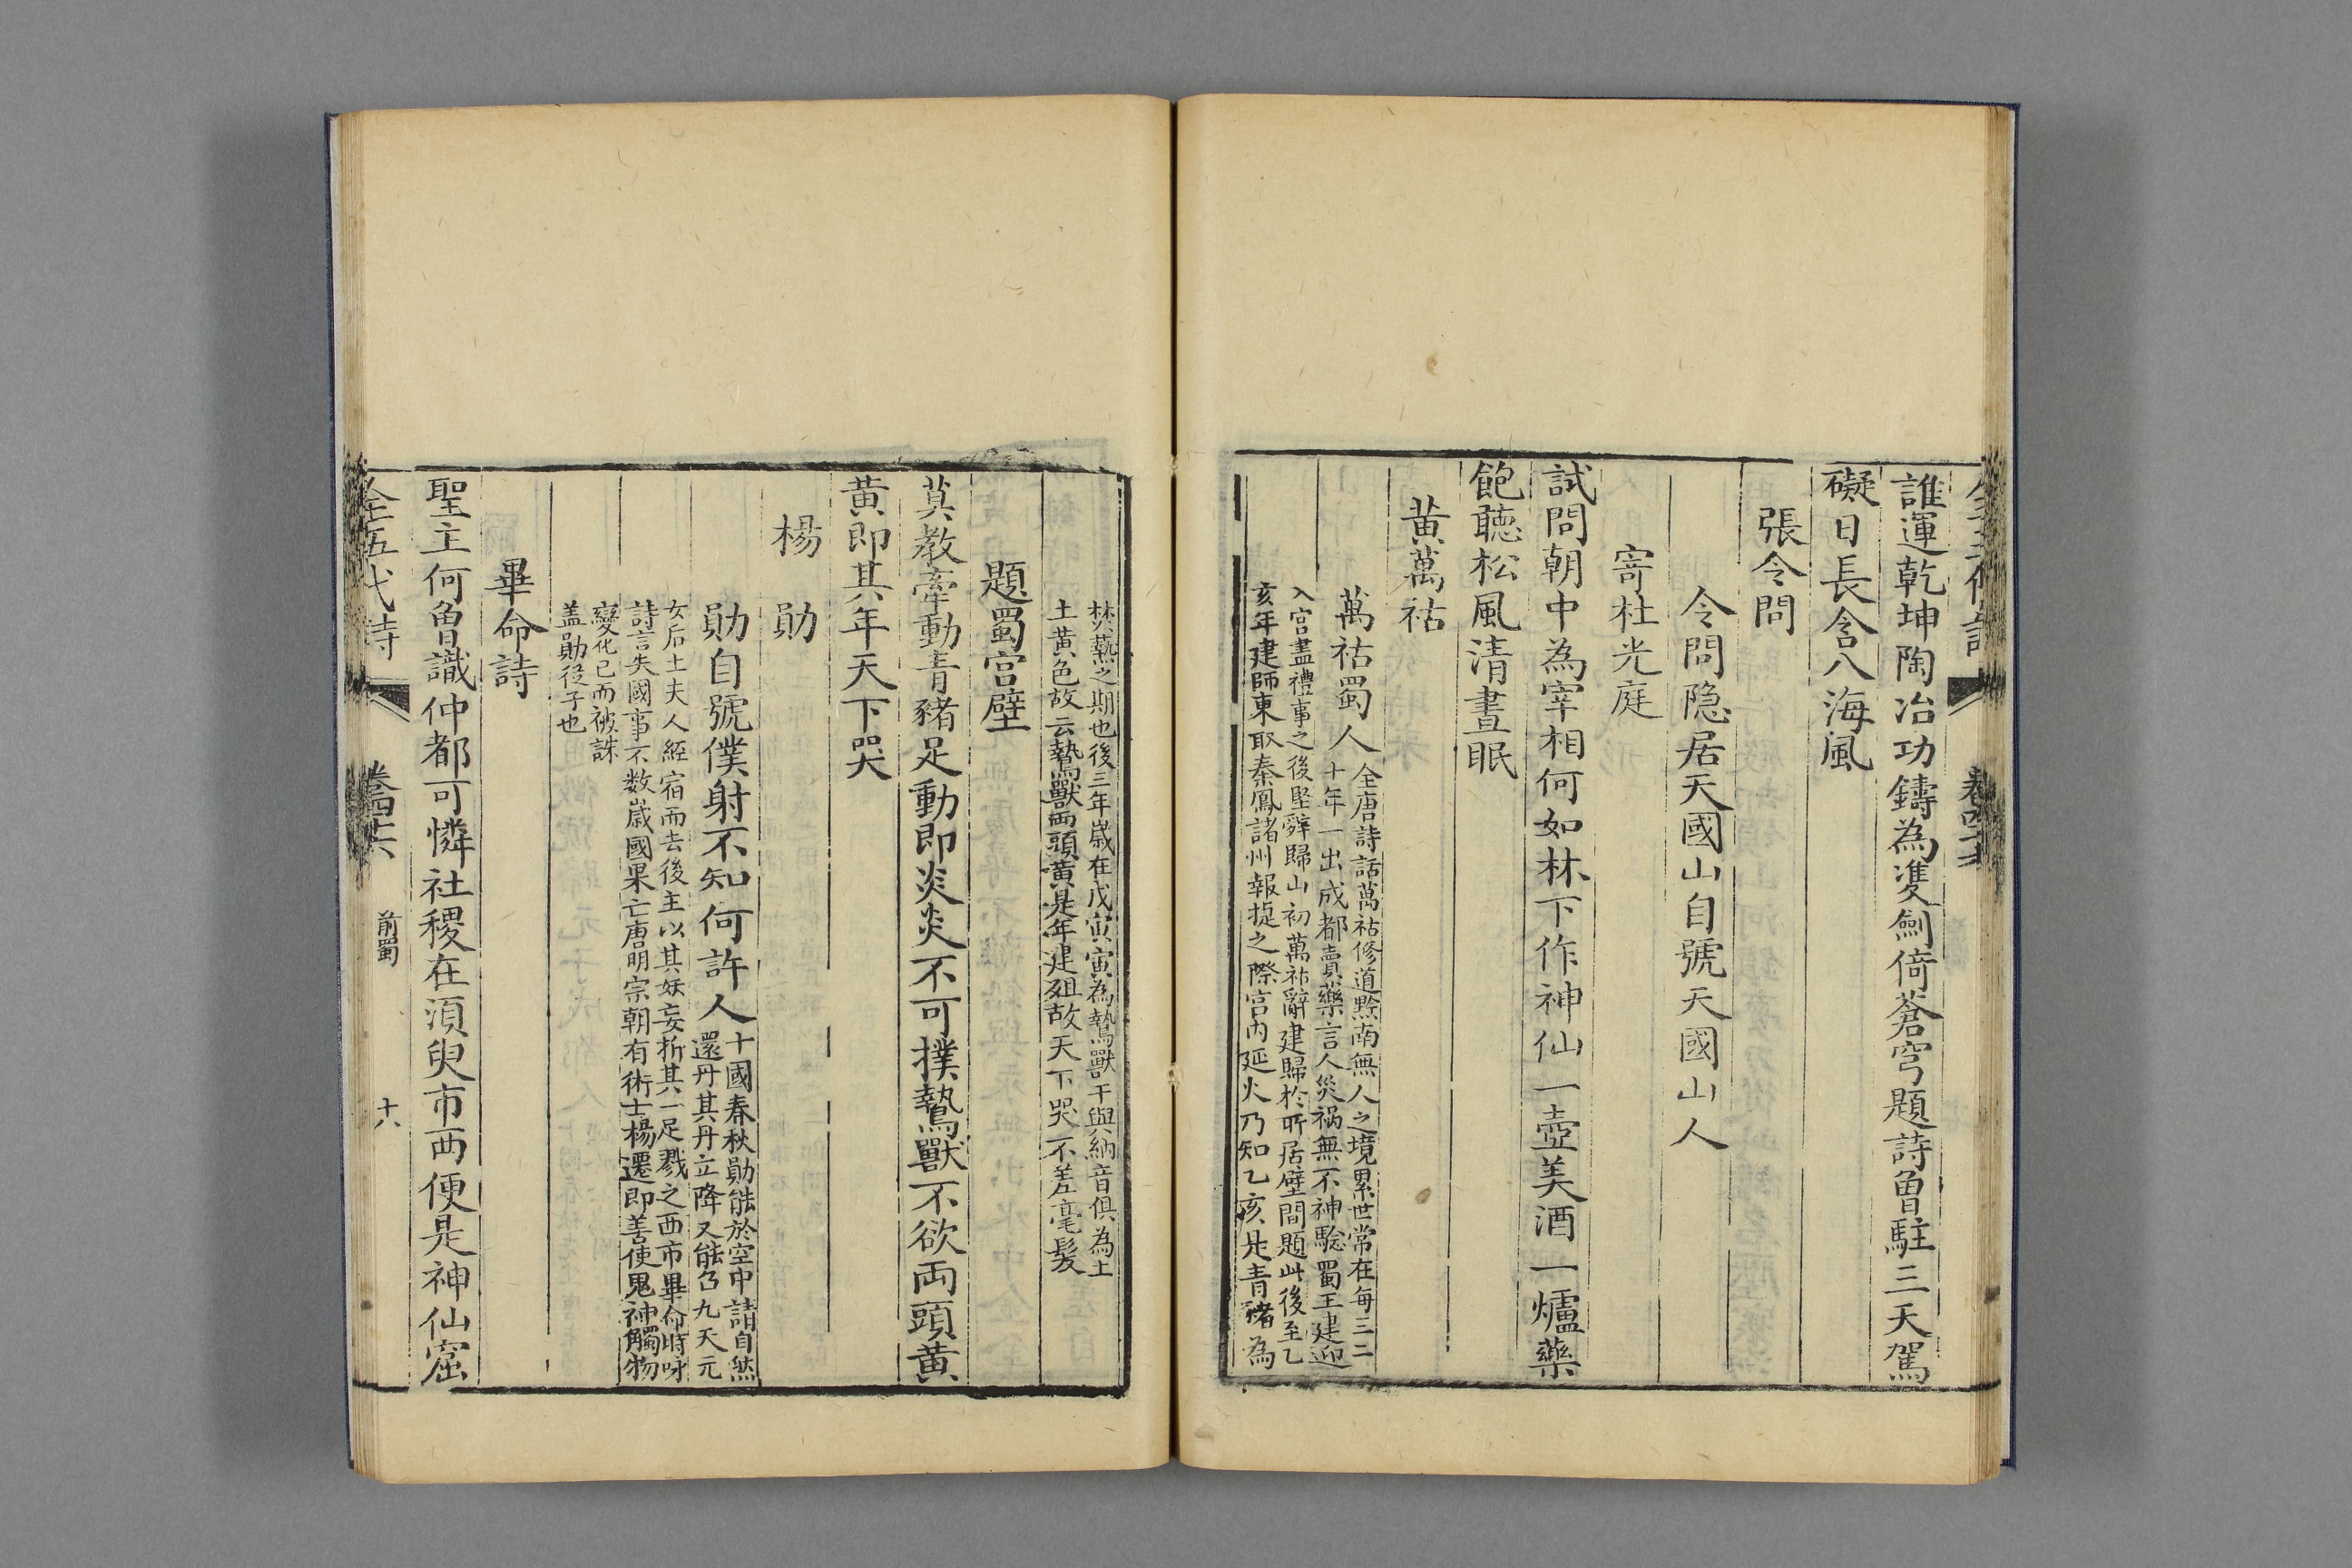 誰運乾坤陶冶功鑄為䨇劍倚蒼穹題詩曾駐三天駕
礙日長含八海風
張令問
令問隐居天國山自號天國山人
寄杜光庭
試問朝中為宰相何如林下作神仙一壺美酒一爐藥
飽聽松風清晝眠
黃萬祜
萬祜蜀人
全唐詩話萬祜修道黔南無人之境累世常在每三二
十年一出成都賣藥言人災禍無不神驗蜀王建迎
入宫盡禮事之後堅辤歸山初萬祜辭建歸於所居壁間題此後至乙
亥年建師東取秦鳳諸州報捷之際宫内延火乃知乙亥是青豬為
焚爇之期也後三年嵗在戊寅寅為鷙獸干與納音俱為土
土黄色故云鷙獸兩頭黄是年建殂故天下哭不差毫髮
題蜀宫壁
莫教牽動青豬足動即炎炎不可撲鷙獸不欲両頭黄
黄即其年天下哭
楊勛
勛自號僕射不知何許人
十國春秋勛能於空中請自然
還丹其丹立降又能召九天元
女后土夫人經宿而去後主以其妖妄折其一足戮之西市畢命時呼
詩言失國事不数嵗國果亡唐明宗朝有術士楊遷即善使鬼神觸物
變化已而被誅
盖勛後子也
畢命詩
聖主何曾識仲都可憐社稷在須臾市西便是神仙窟
全五代詩
卷四十六
前蜀
十六